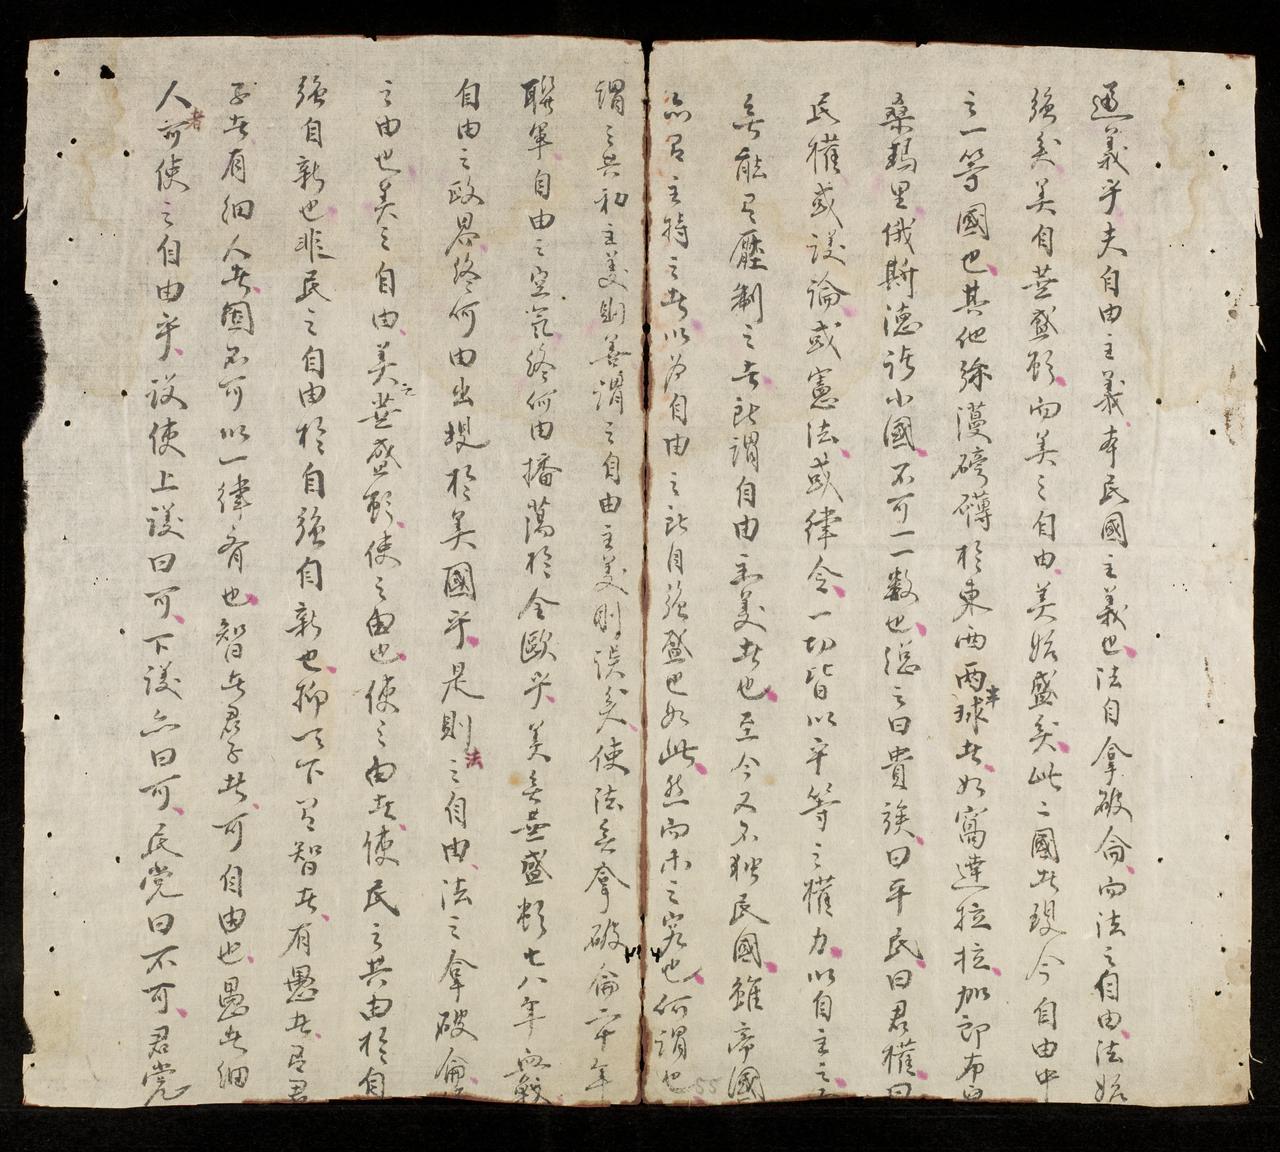 通義乎夫自由主義本民國主義也法自拿破侖而法之自由法始
強矣美自華盛頓而美之自由美始盛矣此二國者現今自由中
之一等國也其他彌漫磅礴於東西兩半球者如窩達拉拉加郎布
桑瑪里俄斯德諸小國不可一一數也總之曰貴族曰平民曰君權曰
民權或議論或憲法或律令一切皆以平等之權力以自主之
無能有壓制之者即謂自由主義者也至今又不独民國雖帝國
亦有主持之者以為自由之能自強盛也如此然而未之究也何謂也
謂之共和主義則善謂之自由主義則誤矣使法無拿破侖二十年
聯軍自由之空氣終何由播蕩於全歐乎美無華盛頓七八年血戰
自由之政界終何由出現於美國乎是則法之自由法之拿破侖
之由也美之自由美之華盛頓使之由也使之由者使民之共由於自
強自新也非民之自由於自強自新也抑以下有智者有愚者有君
子者有細人者固不可以一律齊也智者君子者可自由也愚者細
人者可使之自由乎設使上議曰可下議亦曰可民党曰不可君党